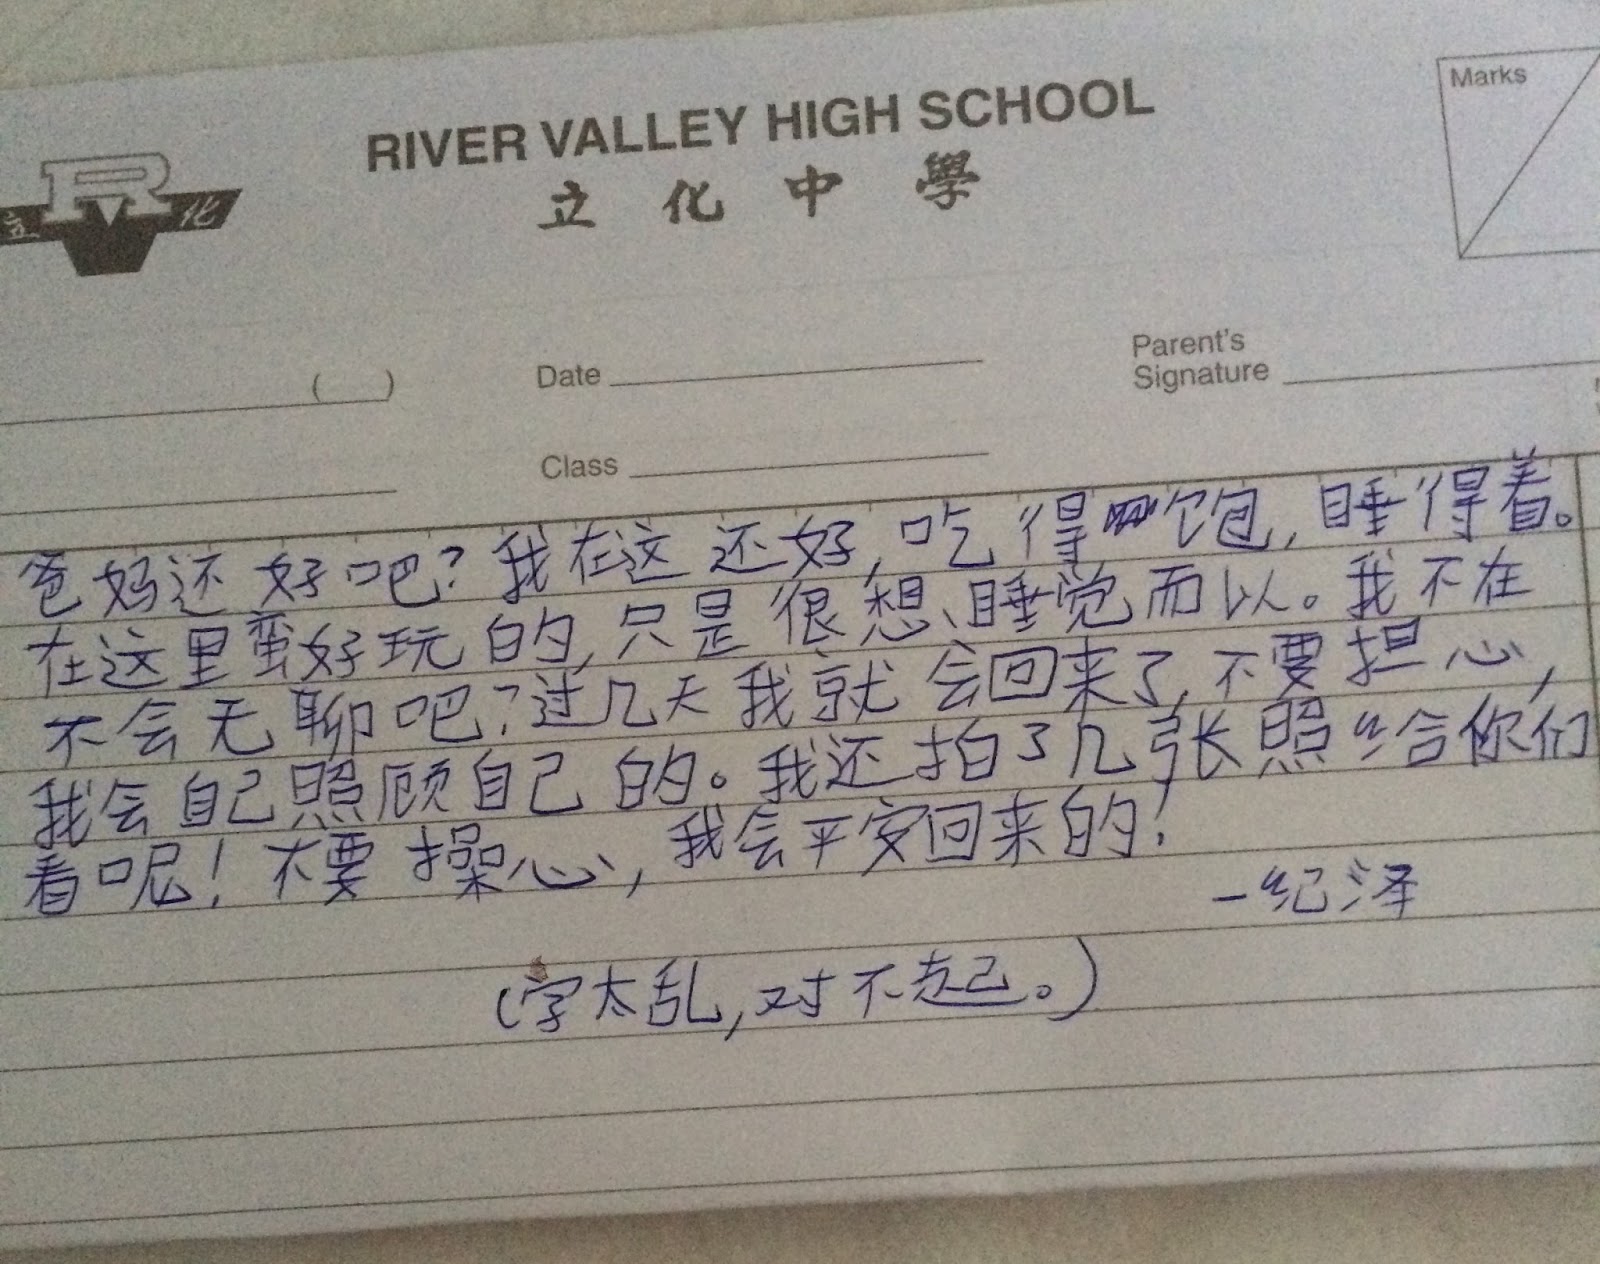 RIVER VALLEY HIGH SCHOOL
立化中學
立 R 化
Marks
( )
Date
Parent's
Signature
Class
爸妈还好吧?我在这还好,吃得饱,睡得着。
在这里蛮好玩的,只是很想睡觉而以。我不在
不会无聊吧?过几天我就会回来了,不要担心,
我会自己照顾自己的。我还拍了几张照给你们
看呢!不要操心,我会平安回来的!
-纪泽
(字太乱,对不起。)